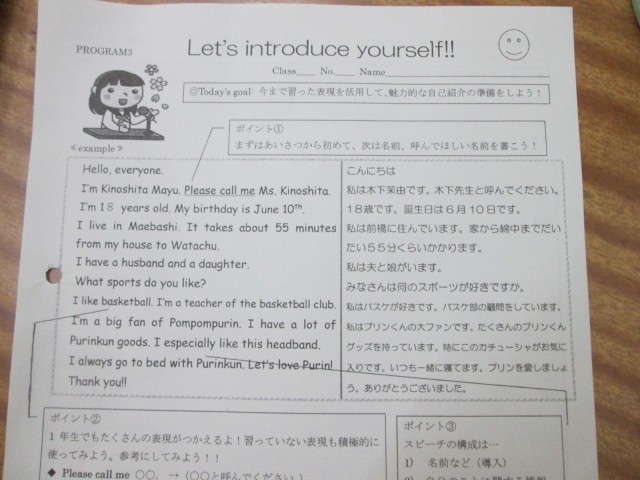 PROGRAM3
Let's introduce yourself!!
Class____ No.____ Name____
◎Today's goal: 今まで習った表現を活用して、魅力的な自己紹介の準備をしよう！
ポイント①
まずはあいさつから初めて、次は名前、呼んでほしい名前を書こう！
≪example≫
Hello, everyone.
I'm Kinoshita Mayu. Please call me Ms. Kinoshita.
I'm 18 years old. My birthday is June 10th.
I live in Maebashi. It takes about 55 minutes
from my house to Watachu.
I have a husband and a daughter.
What sports do you like?
I like basketball. I'm a teacher of the basketball club.
I'm a big fan of Pompompurin. I have a lot of
Purinkun goods. I especially like this headband.
I always go to bed with Purinkun. Let's love Purin!
Thank you!!
こんにちは
私は木下茉由です。木下先生と呼んでください。
18歳です。誕生日は6月10日です。
私は前橋に住んでいます。家から綿中までだい
たい55分くらいかかります。
私は夫と娘がいます。
みなさんは何のスポーツが好きですか。
私はバスケが好きです。バスケ部の顧問をしています。
私はプリンくんの大ファンです。たくさんのプリンくん
グッズを持っています。特にこのカチューシャがお気に
入りです。いつも一緒に寝てます。プリンを愛しましょ
う。ありがとうございました。
ポイント②
1年生でもたくさんの表現がつかえるよ！習っていない表現も積極的に
使ってみよう。参考にしてみよう！！
◆ Please call me 〇〇. → (〇〇と呼んでください.)
ポイント③
スピーチの構成は…
1) 名前など（導入）